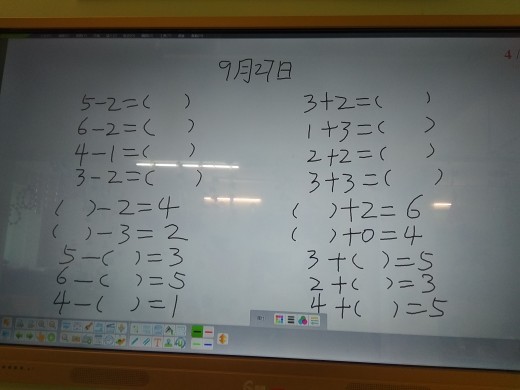 9月27日
5-2=( )
6-2=( )
4-1=( )
3-2=( )
( )-2=4
( )-3=2
5-( )=3
6-( )=5
4-( )=1
3+2=( )
1+3=( )
2+2=( )
3+3=( )
( )+2=6
( )+0=4
3+( )=5
2+( )=3
4+( )=5